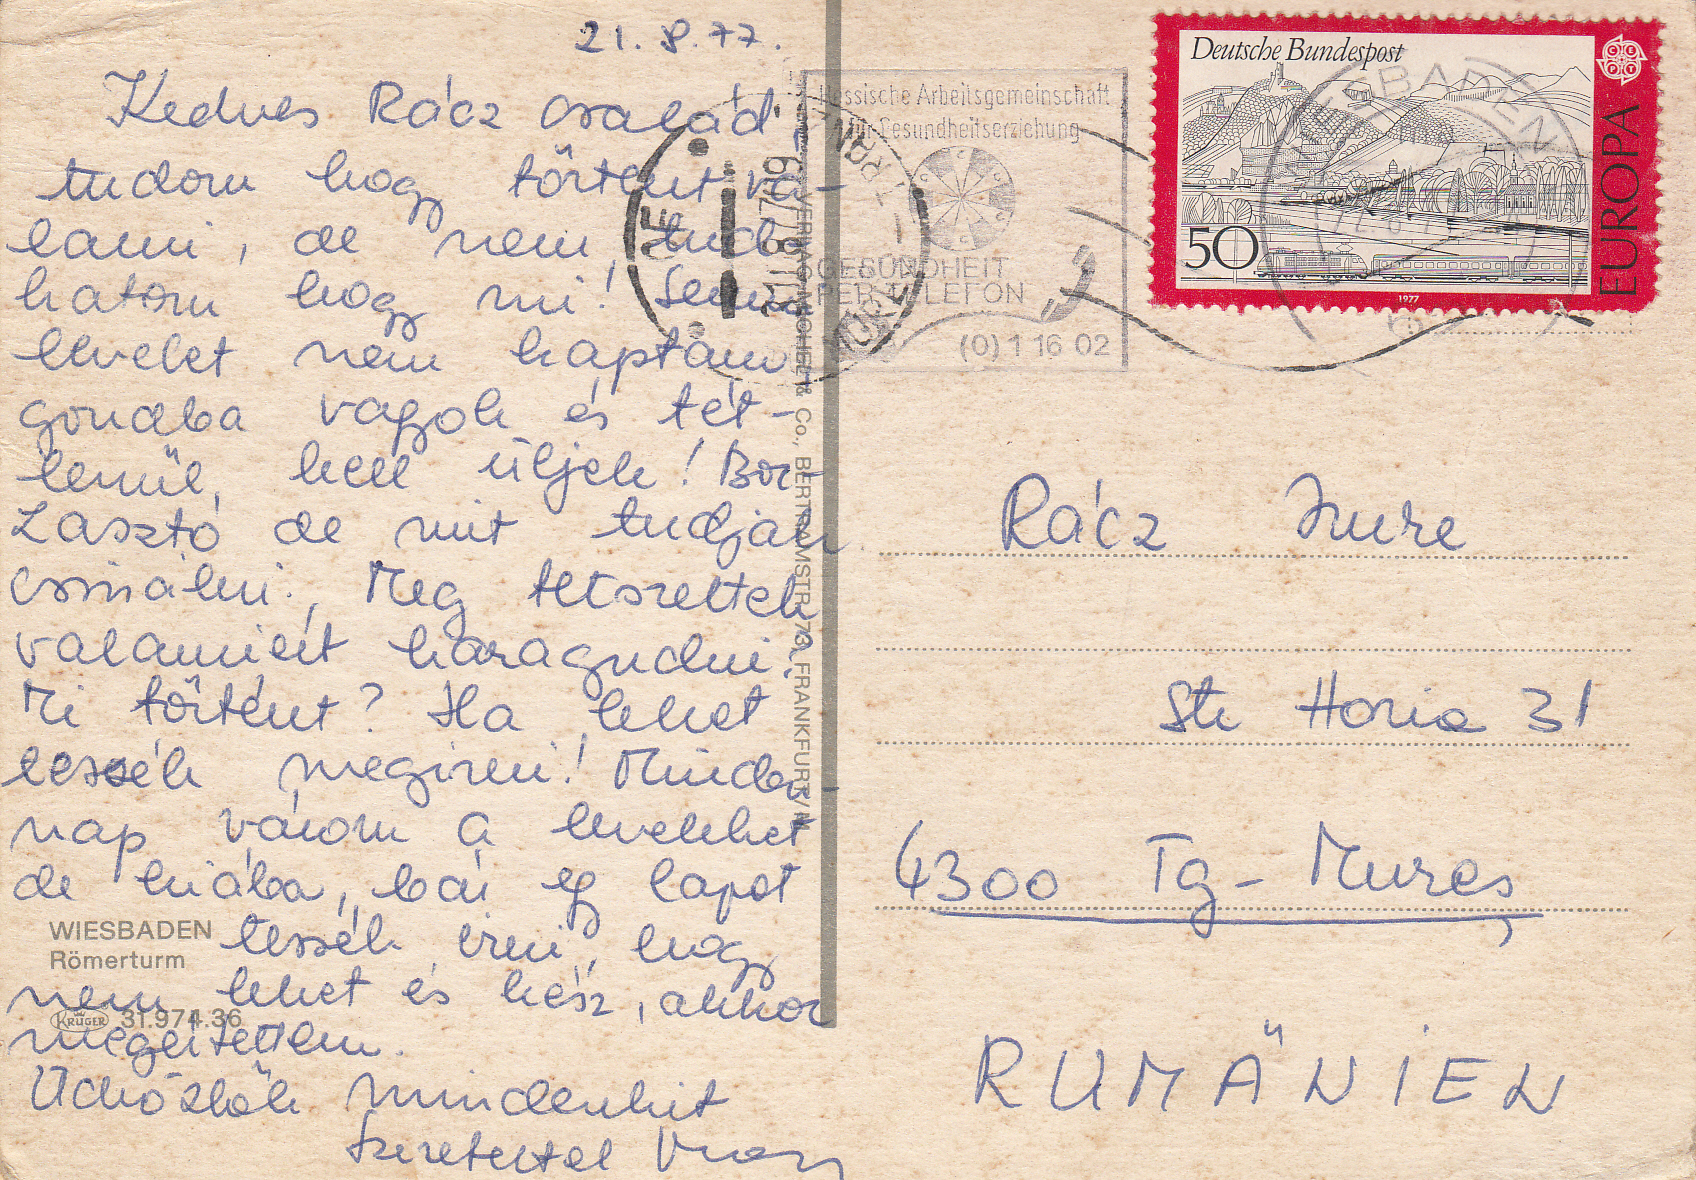 21. 8. 77.
Kedves Rácz család,
tudom hogy történt va-
lami, de nem tudo
hatom hogy mi! Semmi
levelet nem kaptam
gondba vagyok és tét-
lenül, kell üljek! Bor-
zasztó de mit tudjak
csinálni. Meg tetszettek
valamiért haragudni?
Mi történt? Ha lehet
tessék megirni! Minden
nap várom a leveleket
de hiába, bár egy lapot
tessék irni, hogy
nem lehet és kész, akkor
megértettem.
Üdvözlök mindenkit
Szeretettel
WIESBADEN
Römerturm
KRÜGER 31.974.36
BERTRAMSTR. 73, FRANKFURT/M
Deutsche Bundespost
50
EUROPA
CEPT
1977
Hessische Arbeitsgemeinschaft
für Gesundheitserziehung
GESUNDHEIT
PER TELEFON
(0) 1 16 02
WIESBADEN
Rácz Imre
Str Horia 31
4300 Tg-Mureș
RUMÄNIEN